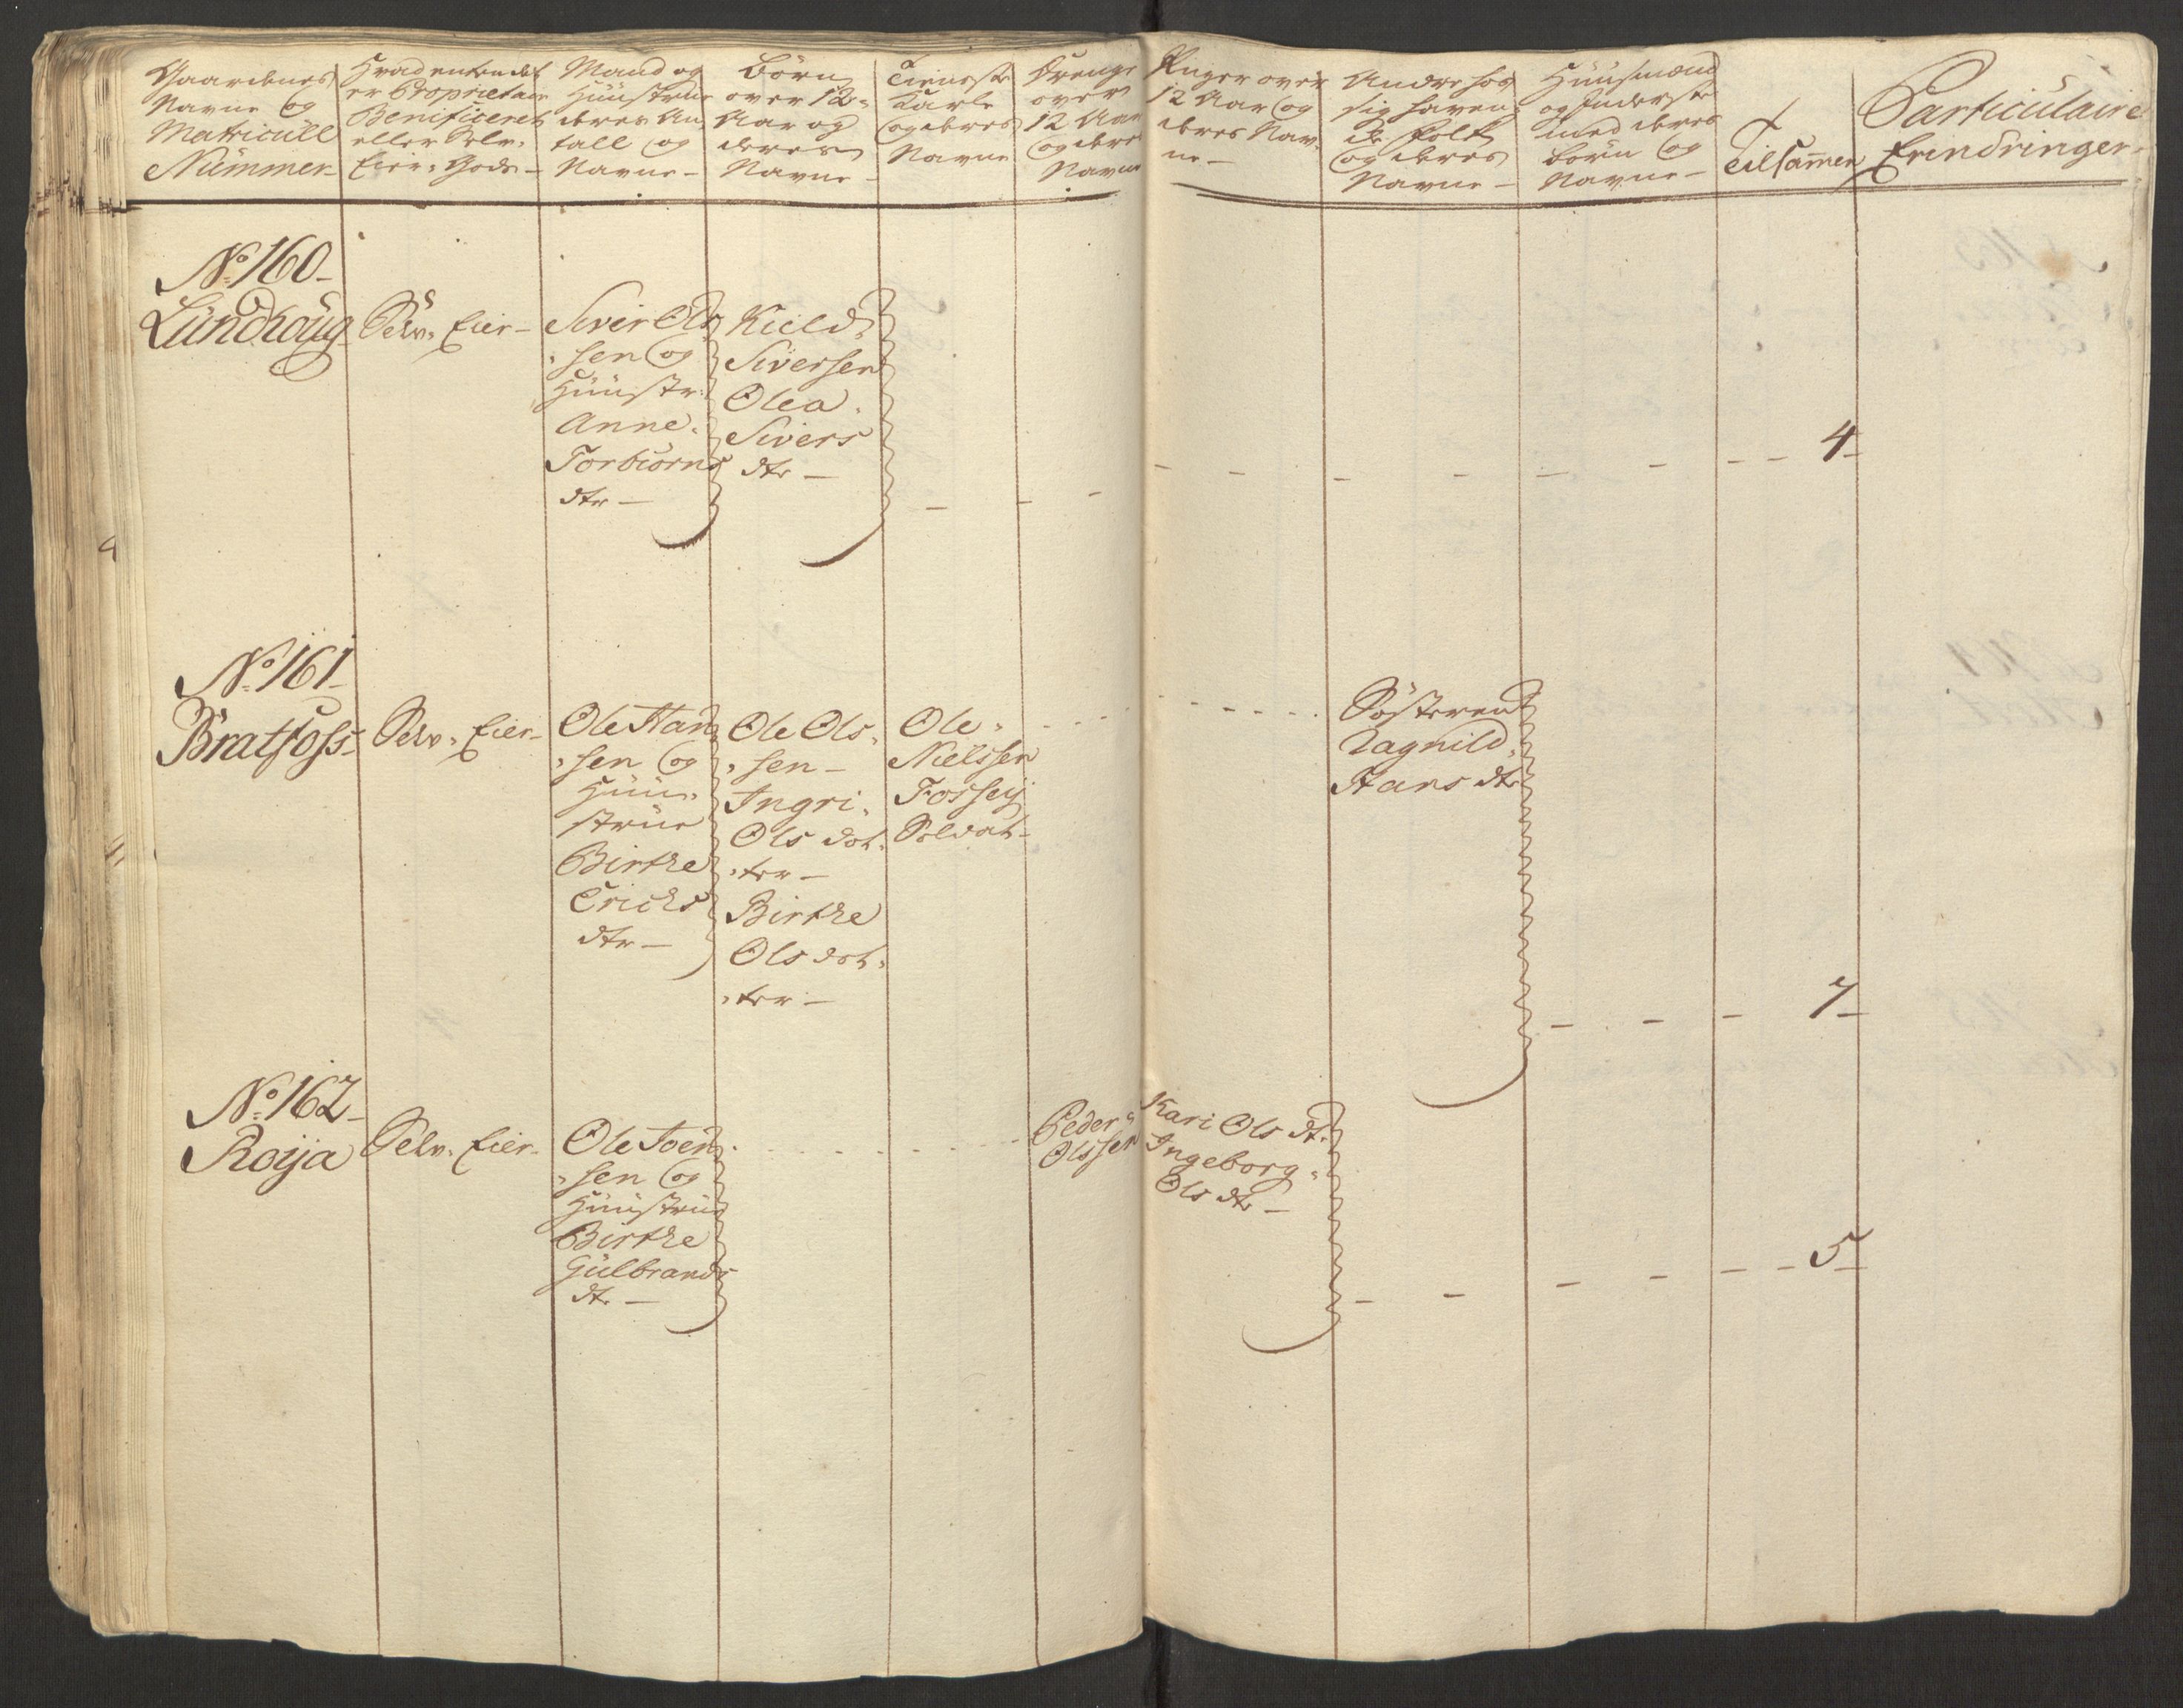 Gaardenes
Navne og
Matricull
Nummer -
Hvad enten det
er Proprietair
Beneficeret
eller Selv-
Eier-Gods -
Mand og
Hüüstrue
deres An-
tall og
Navne -
Börn
over 12-
Aar og
deres
Navne -
Tieneste
Karle
og deres
Navne
Drenge
over
12 Aar
og dere
Navne
Piger over
12 Aar og
deres Nav-
ne -
Andre hos
sig haven-
de folk
og deres
Navne -
Hüüsmænd
og Inderste
med deres
Börn og
Navne -
Tilsam̅en
Particulaire
Erindringer
No. 160 -
Lündhoüg
Selv-Eier -
Siver Ols
-sen og
Hüüstr:
Anne
Torbiörns
dtr -
Kield
Siversen
Olea
Sivers
dtr -
4 -
No. 161 -
Bratfoss -
Selv-Eier -
Ole Han
-sen og
Hüü-
strüe
Birthe
Erichs
dtr -
Ole Ols-
-sen -
Ingri
Ols dot-
-ter -
Birthe
Ols dot-
-ter -
Ole
Nielssen
Fossey
Soldat -
Søsteren
Ragnild
Hans dtr
7 -
No. 162 -
Roija
Selv-Eier -
Ole Joen
-sen og
Hüüstrüe
Birthe
Gülbrands
dt. -
Peder
Olssen
Kari Ols dt.
Ingeborg
Ols dtr -
5 -